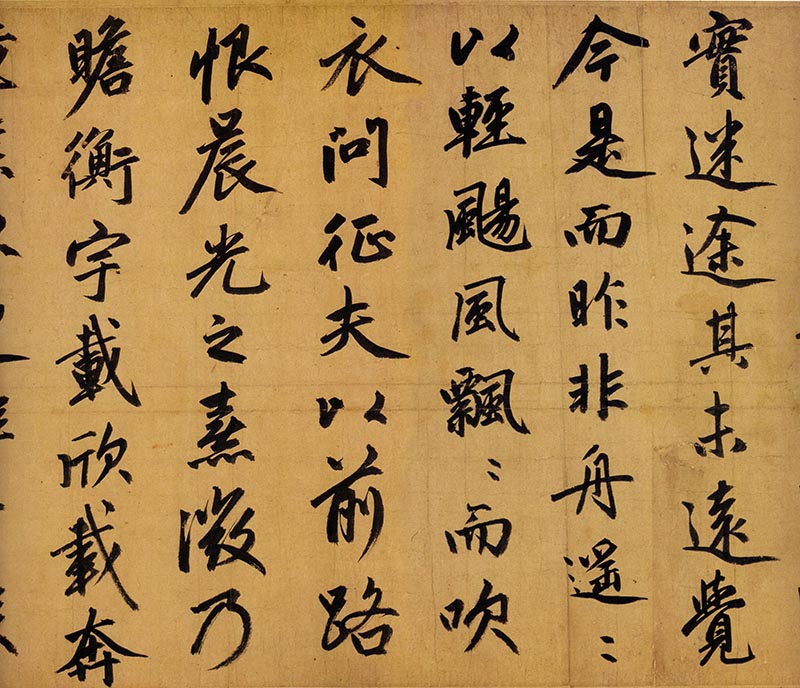 實迷途其未遠覺
今是而昨非舟遥〻
以輕颺風飄〻而吹
衣問征夫以前路
恨晨光之熹微乃
瞻衡宇載欣載奔